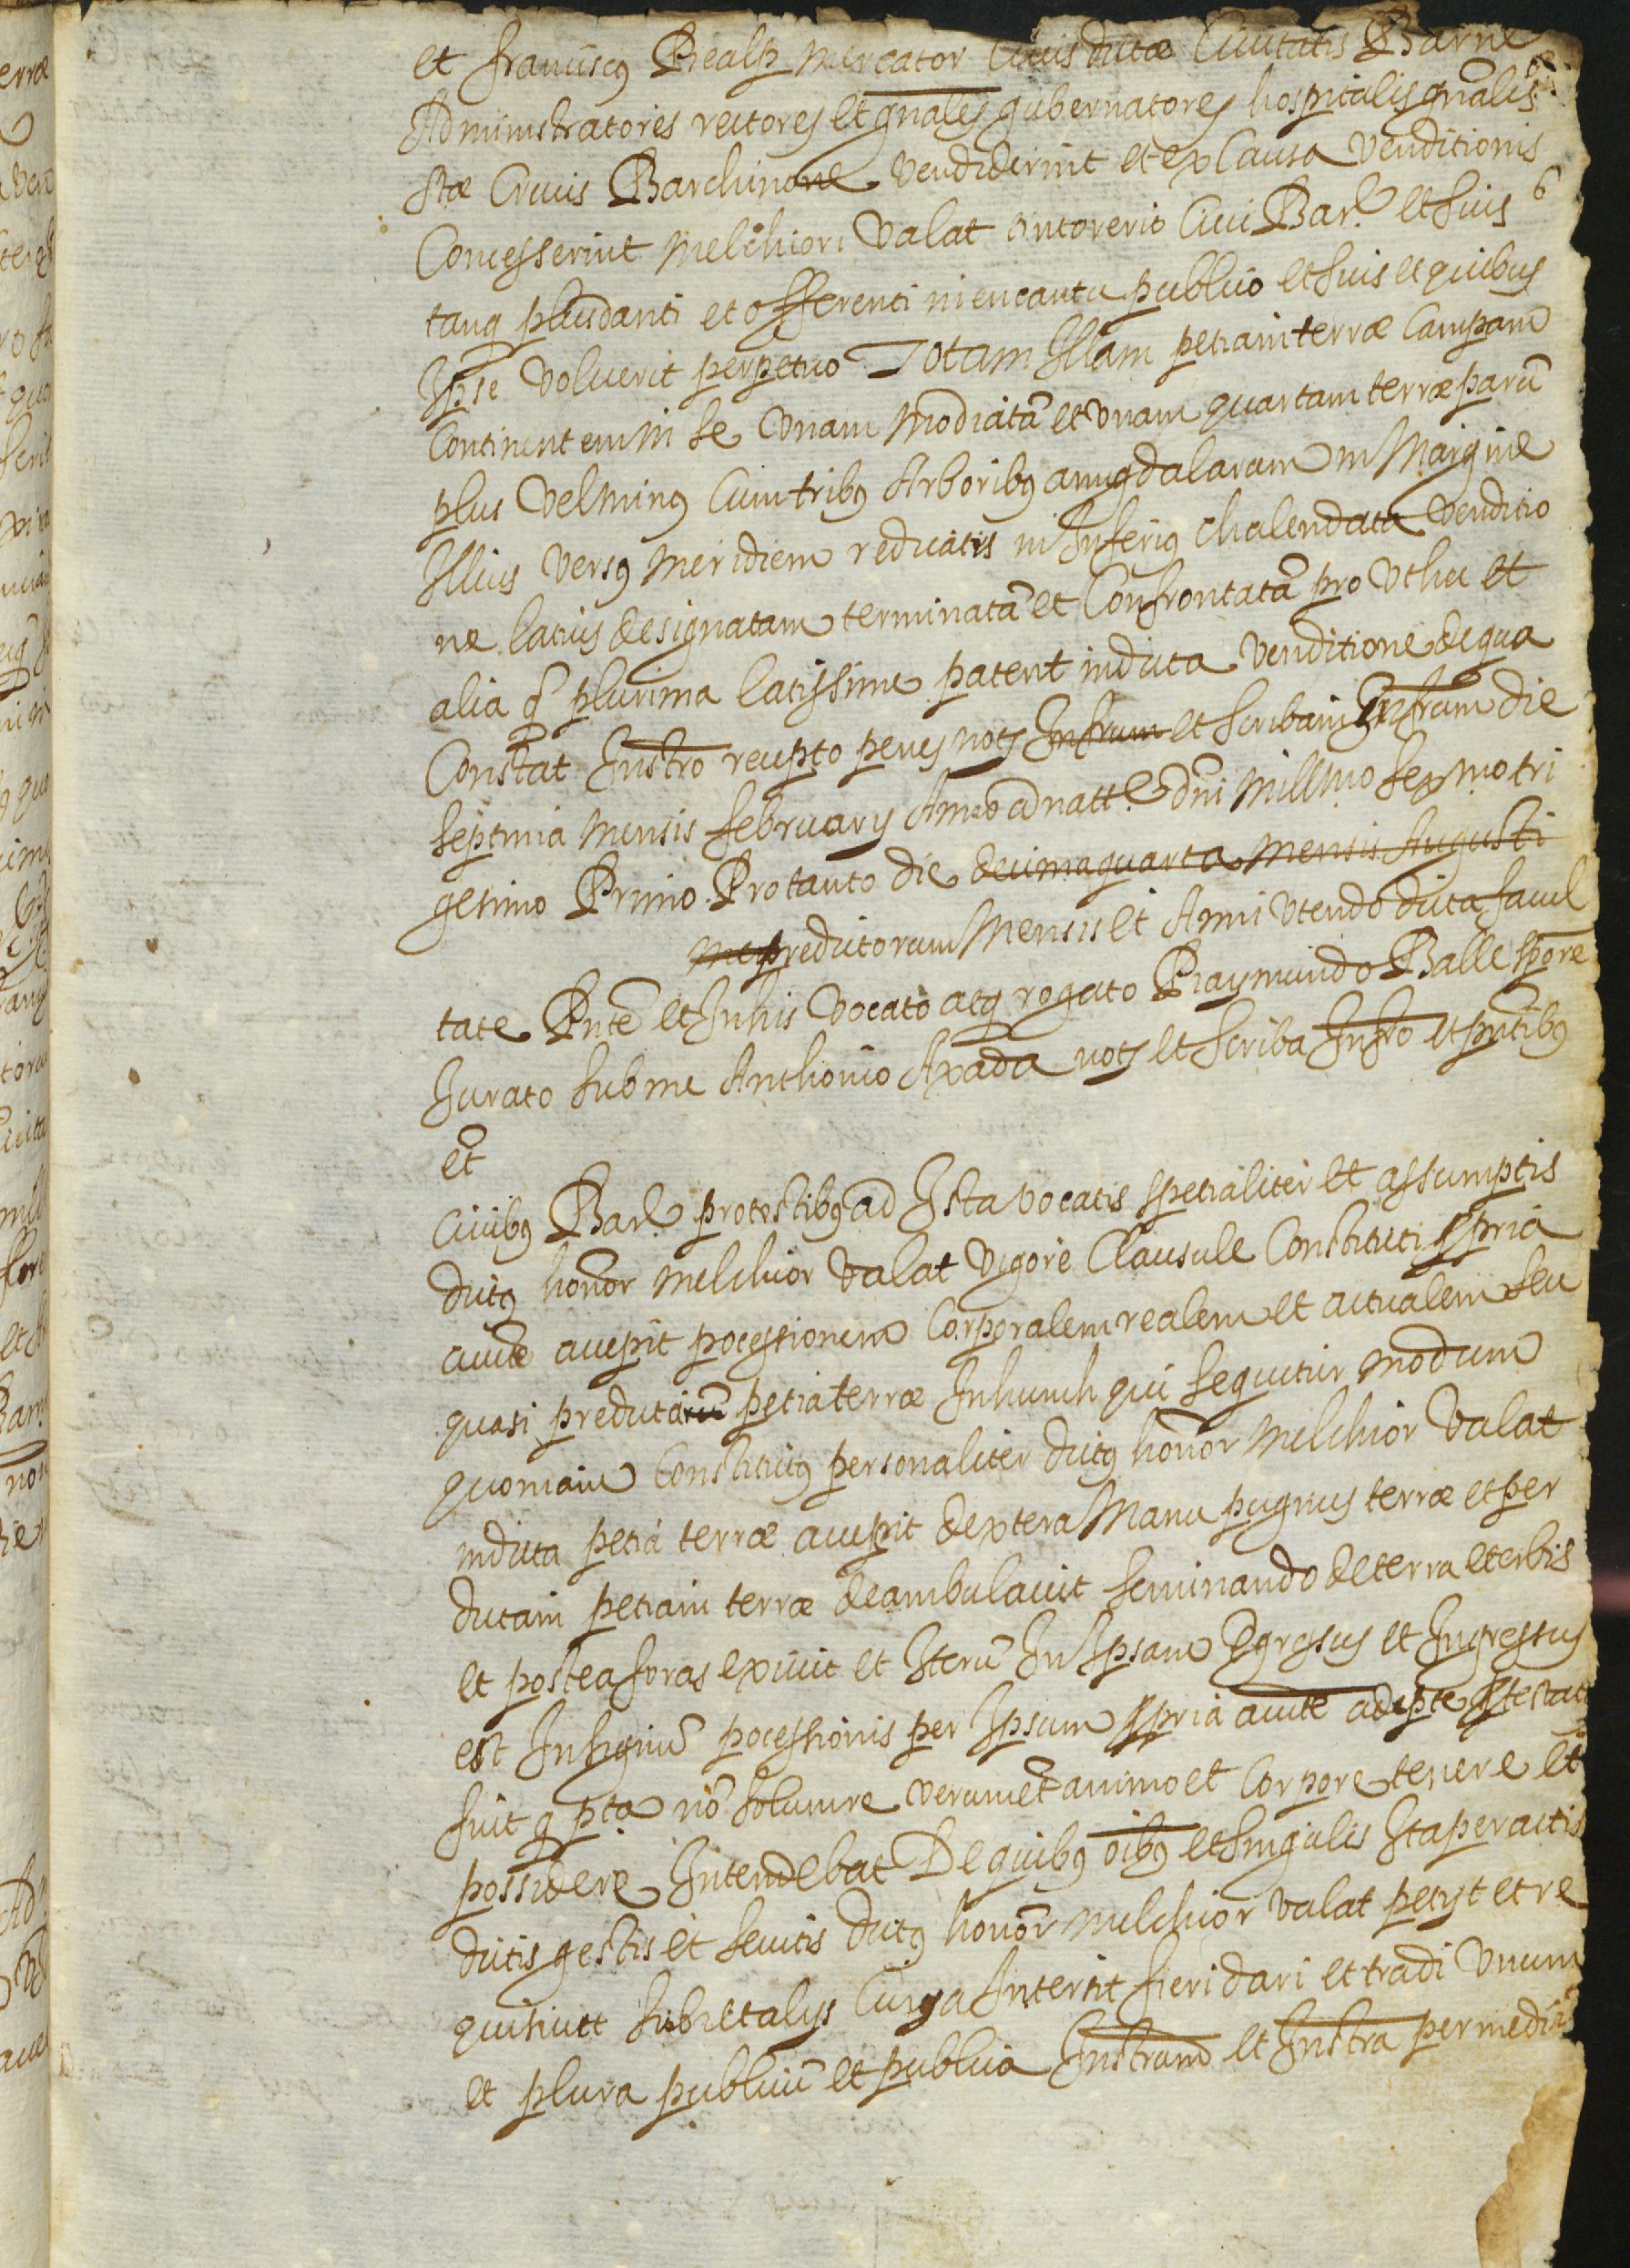 et franciscus Realp mercator Civis dictæ Civitatis Barne
Administratores rectores et gnales gubernatores hospitalis gnalis
Stæ Crucis Barchinone Vendiderint et ex Causa Venditionis
Concesserint Melchiori Valat tintorerio Civi Bar. et suis
tanq plusdanti et offerenti in encantu publico et suis et quibus
Ipse Voluerit perpetuo Totam Illam petiam terræ Campam
Continentem in se Vnam Modiatã et Vnam quartam terræ parũ
plus Vel Minus Cum tribus Arboribus amygdalarum in Margine
Illius Versus Meridiem reducatis in Inferius Chalendata Venditio
ne latius designatam terminatã et Confrontatã pro Vt hec et
alia q plurima latissime patent in dicta Venditione de qua
Constat Instro recepto penes nots Infrum et Scribam Infrum die
Septima Mensis february Anno a natte dni Millmo Sexmo tri
gesimo Primo. Protanto die decimaquarta Mensis Augusti
me predictorum Mensis et Anni Vtendo dicta facul
tate Pnte et Inhis Vocato atq rogato Raymundo Balle spore
Jurato sub me Anthonio Axada nots et Scriba Infro et pntibus
et
Civibus Bar. pro testibus ad Ista vocatis spetialiter et assumptis
dictus honor Melchior Valat Vigore Clausule Constituti ppria
aucte accepit pocessionem Corporalem realem et actualem seu
quasi predictarũ petia terræ Inhunch qui sequitur modum
quoniam Constitutus personaliter dictus honor Melchior Valat
in dicta petia terræ accepit dextera Manu pugnus terræ et per
dictam petiam terræ deambulavit seminando de terra et erbis
et postea foras exivit et Iterũ In Ipsam Egressus et Ingressus
est In signũ pocessionis per Ipsum ppria aucte adepte ptestat
fuit q pta nõ solum re verumet animo et Corpore tenere et
possidere Intendebat De quibus oibus et singulis Ita peractis
dictis gestis et secutis dictus honor Melchior Valat petyt et re
quisivit subi et alys Cuius a Intersit fieri dari et tradi Vnum
et plura publicũ et publica Instrum et Instra per me dictũ